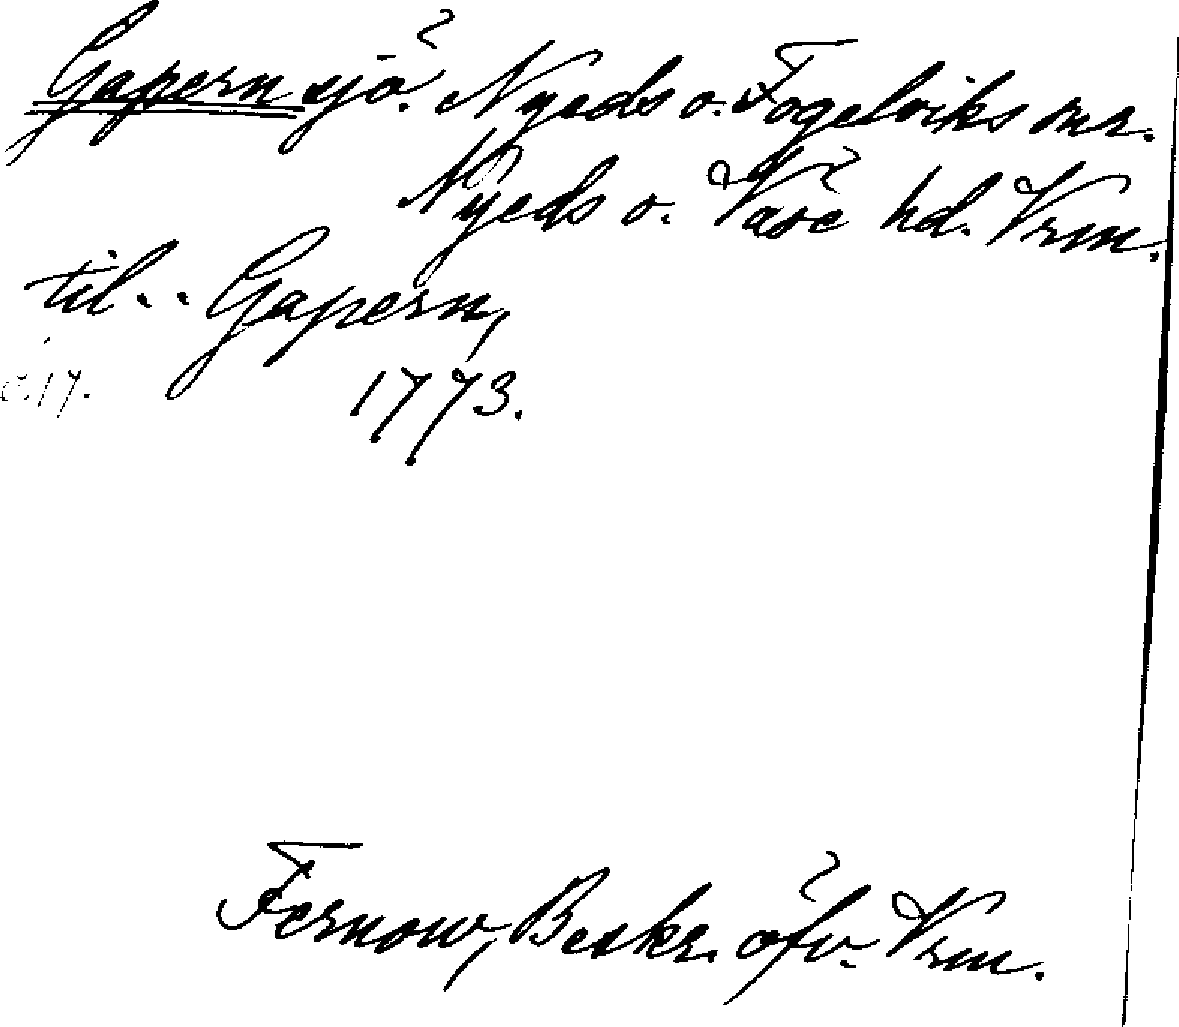 Gapern sjö. Nyeds o. Fogelviks snr.
Nyeds o. Väse hd. Vrm.
til.. Gapern,
s. 17.
1773.
Fernow, Beskr. öfv. Vrm.